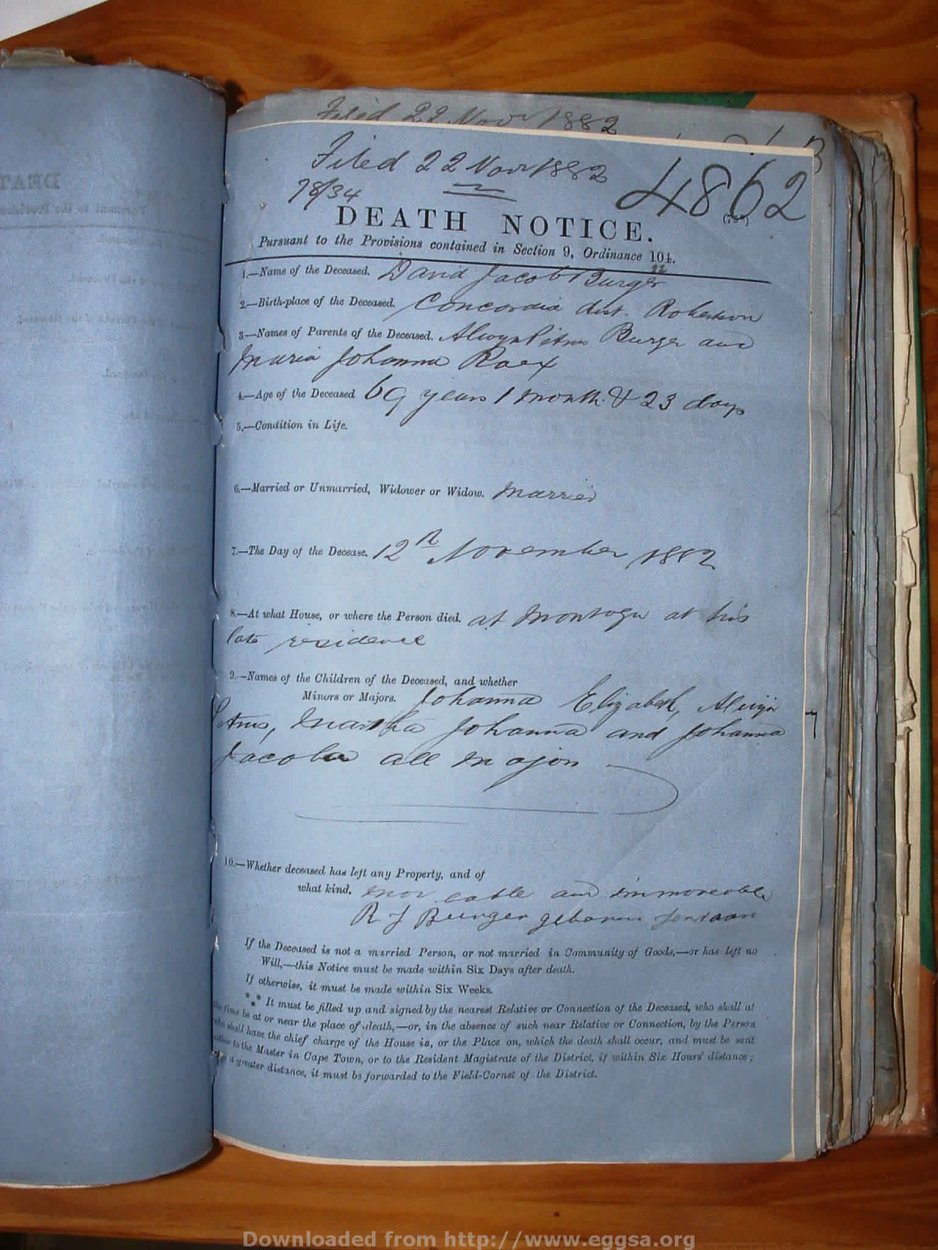 Filed 22 Nov 1882
Filed 22 Nov 1882
78/34
4862
DEATH NOTICE.
Pursuant to the Provisions contained in Section 9, Ordinance 104.
1.—Name of the Deceased. David Jacob Burger
2.—Birth-place of the Deceased. Concordia dist. Robertson
3.—Names of Parents of the Deceased. Alwyn Petrus Burger and
Maria Johanna Roex
4.—Age of the Deceased 69 years 1 month & 23 days
5.—Condition in Life.
6.—Married or Unmarried, Widower or Widow. Married
7.—The Day of the Decease. 12th November 1882
8.—At what House, or where the Person died. at Montagu at his
late residence
9.—Names of the Children of the Deceased, and whether
Minors or Majors. Johanna Elizabeth, Alwyn
Petrus, Martha Johanna and Johanna
Jacoba all Majors
10.—Whether deceased has left any Property, and of
what kind. movable and immovable
R J Burger geboren
If the Deceased is not a married Person, or not married in Community of Goods,—or has left no
Will,—this Notice must be made within Six Days after death.
If otherwise, it must be made within Six Weeks.
*** It must be filled up and signed by the nearest Relative or Connection of the Deceased, who shall at
the time be at or near the place of death,—or, in the absence of such near Relative or Connection, by the Person
who shall have the chief charge of the House in, or the Place on, which the death shall occur, and must be sent
either to the Master in Cape Town, or to the Resident Magistrate of the District, if within Six Hours' distance;
a greater distance, it must be forwarded to the Field-Cornet of the District.
Downloaded from http://www.eggsa.org